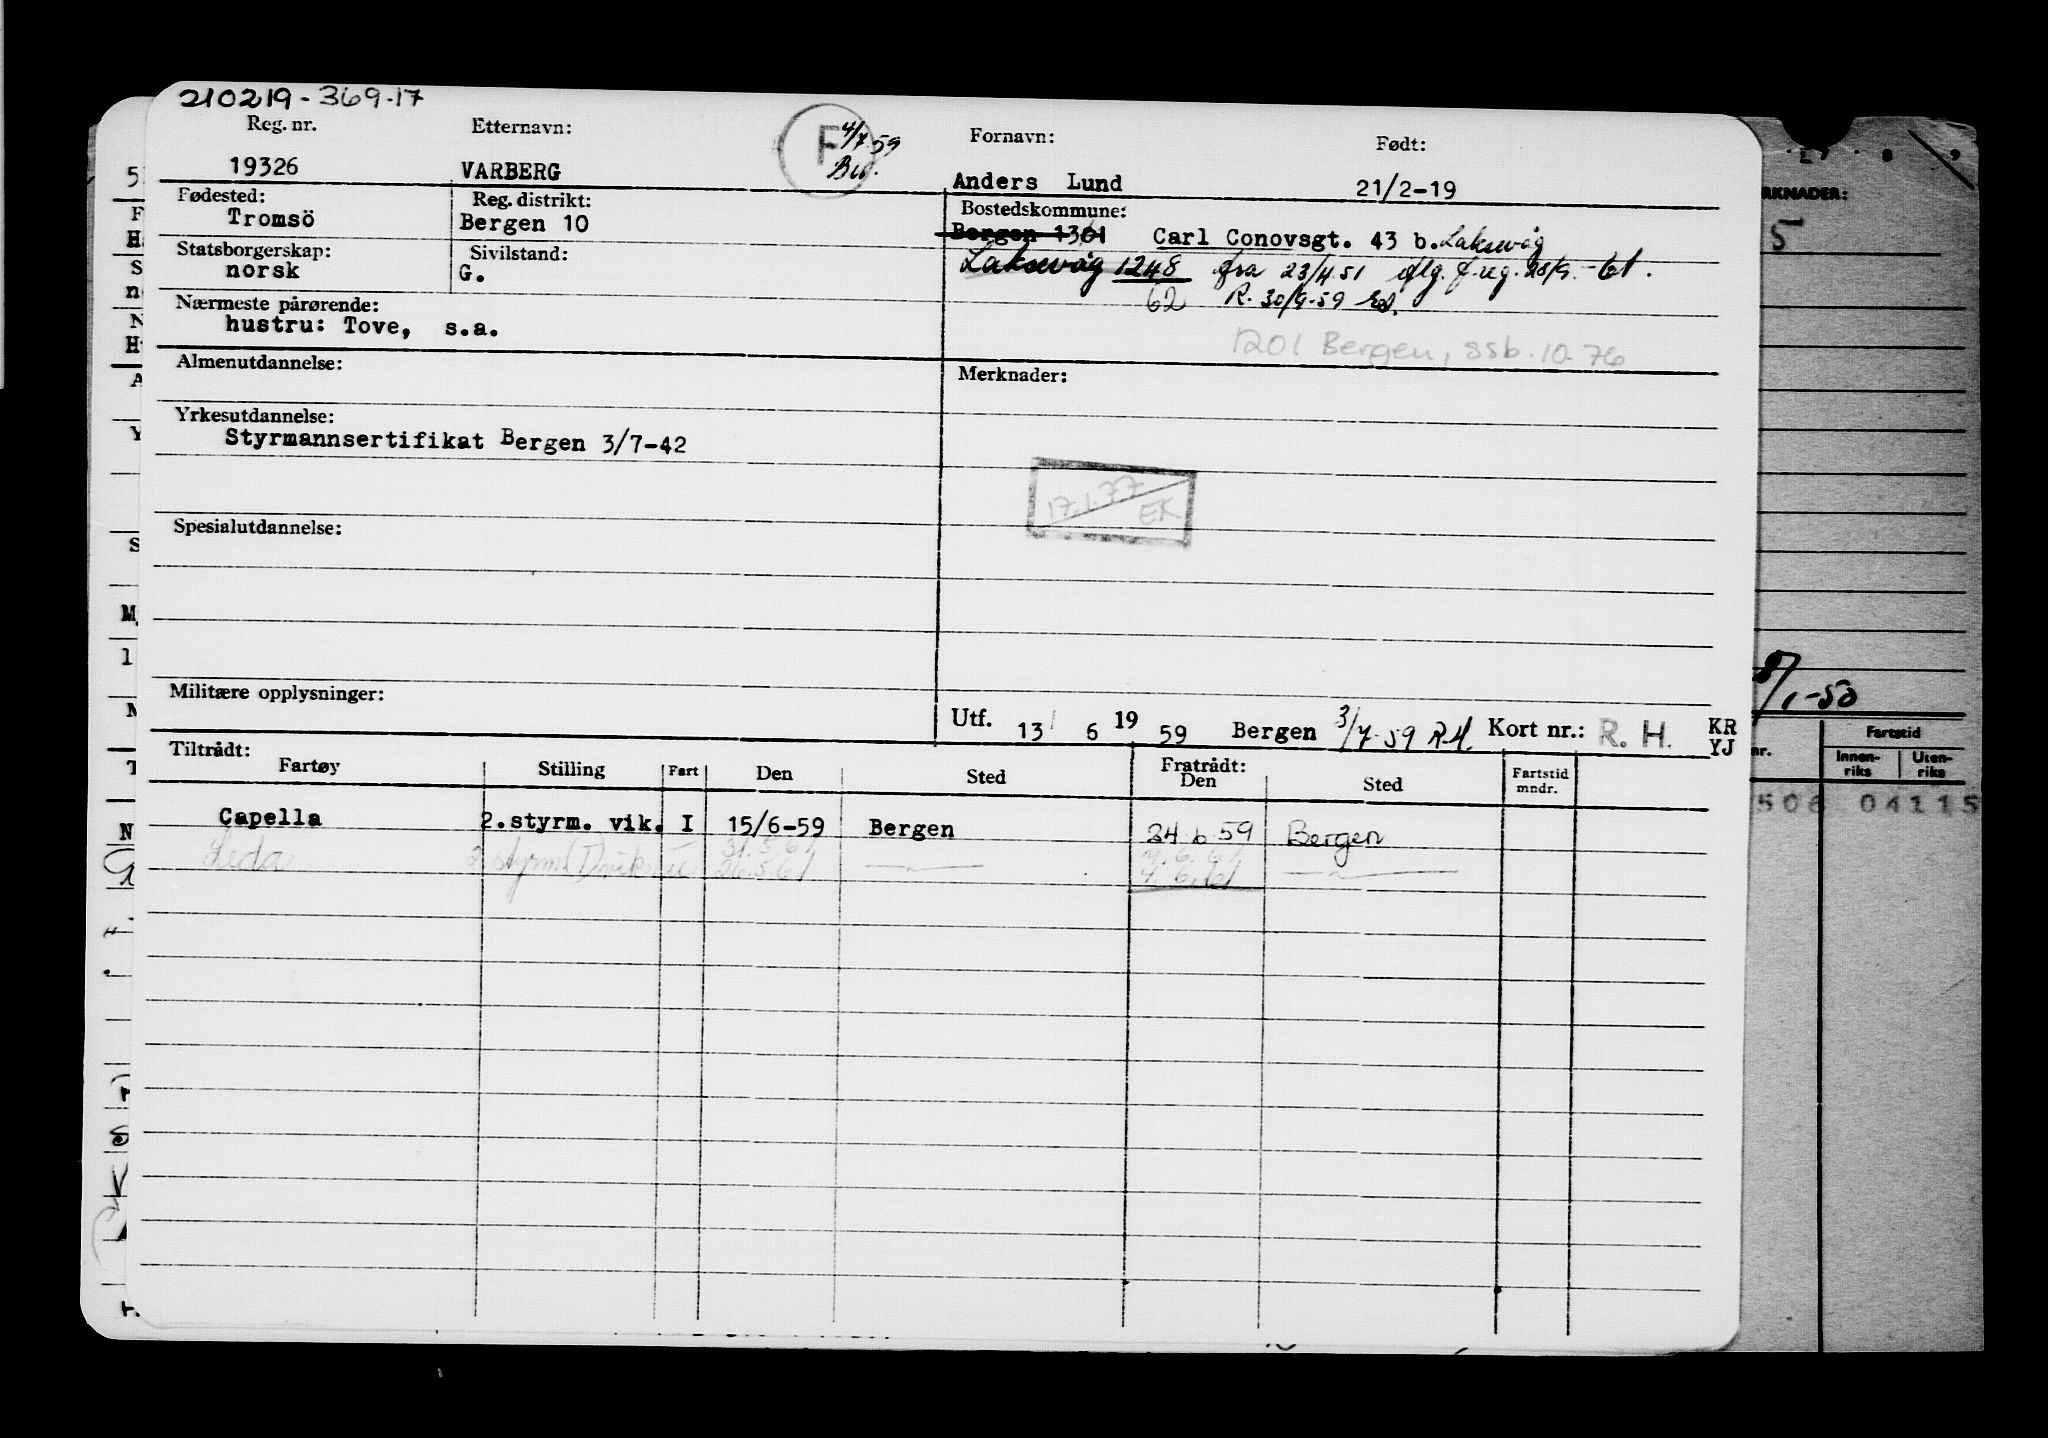 210219-369.17
Reg. nr. Etternavn: Fornavn: Født:
F 4/7.59
19326 VARBERG Anders Lund 21/2-19
Fødested: Reg. distrikt: Bostedskommune:
Tromsö Bergen 10 Bergen 1301 Carl Conovsgt. 43 b. Laksevåg
Statsborgerskap: Sivilstand:
norsk G. Laksevåg 1248 fra 23/4.51 flg. f.reg. 28/9.-61.
62 R. 30/9-59
Nærmeste pårørende:
hustru: Tove, s.a.
1201 Bergen, ssb.10.76
Almenutdannelse: Merknader:
Yrkesutdannelse:
Styrmannsertifikat Bergen 3/7-42
17.1.77 EK
Spesialutdannelse:
Militære opplysninger:
Utf. 13/ 6 19 59 Bergen 3/7-59 R.H. Kort nr.: R. H. KR
YJ
Tiltrådt: Fratrådt:
Fartøy Stilling Fart Den Sted Den Sted Fartstid mndr.
Capella 2.styrm. vik. I 15/6-59 Bergen 24.6.59 Bergen
31.5.61
Leda 2 styrm (I) 26.5.61 4.6.61
RKNADER:
5
/1-50
nr. Fartstid
Innen-riks Uten-riks
506 04115